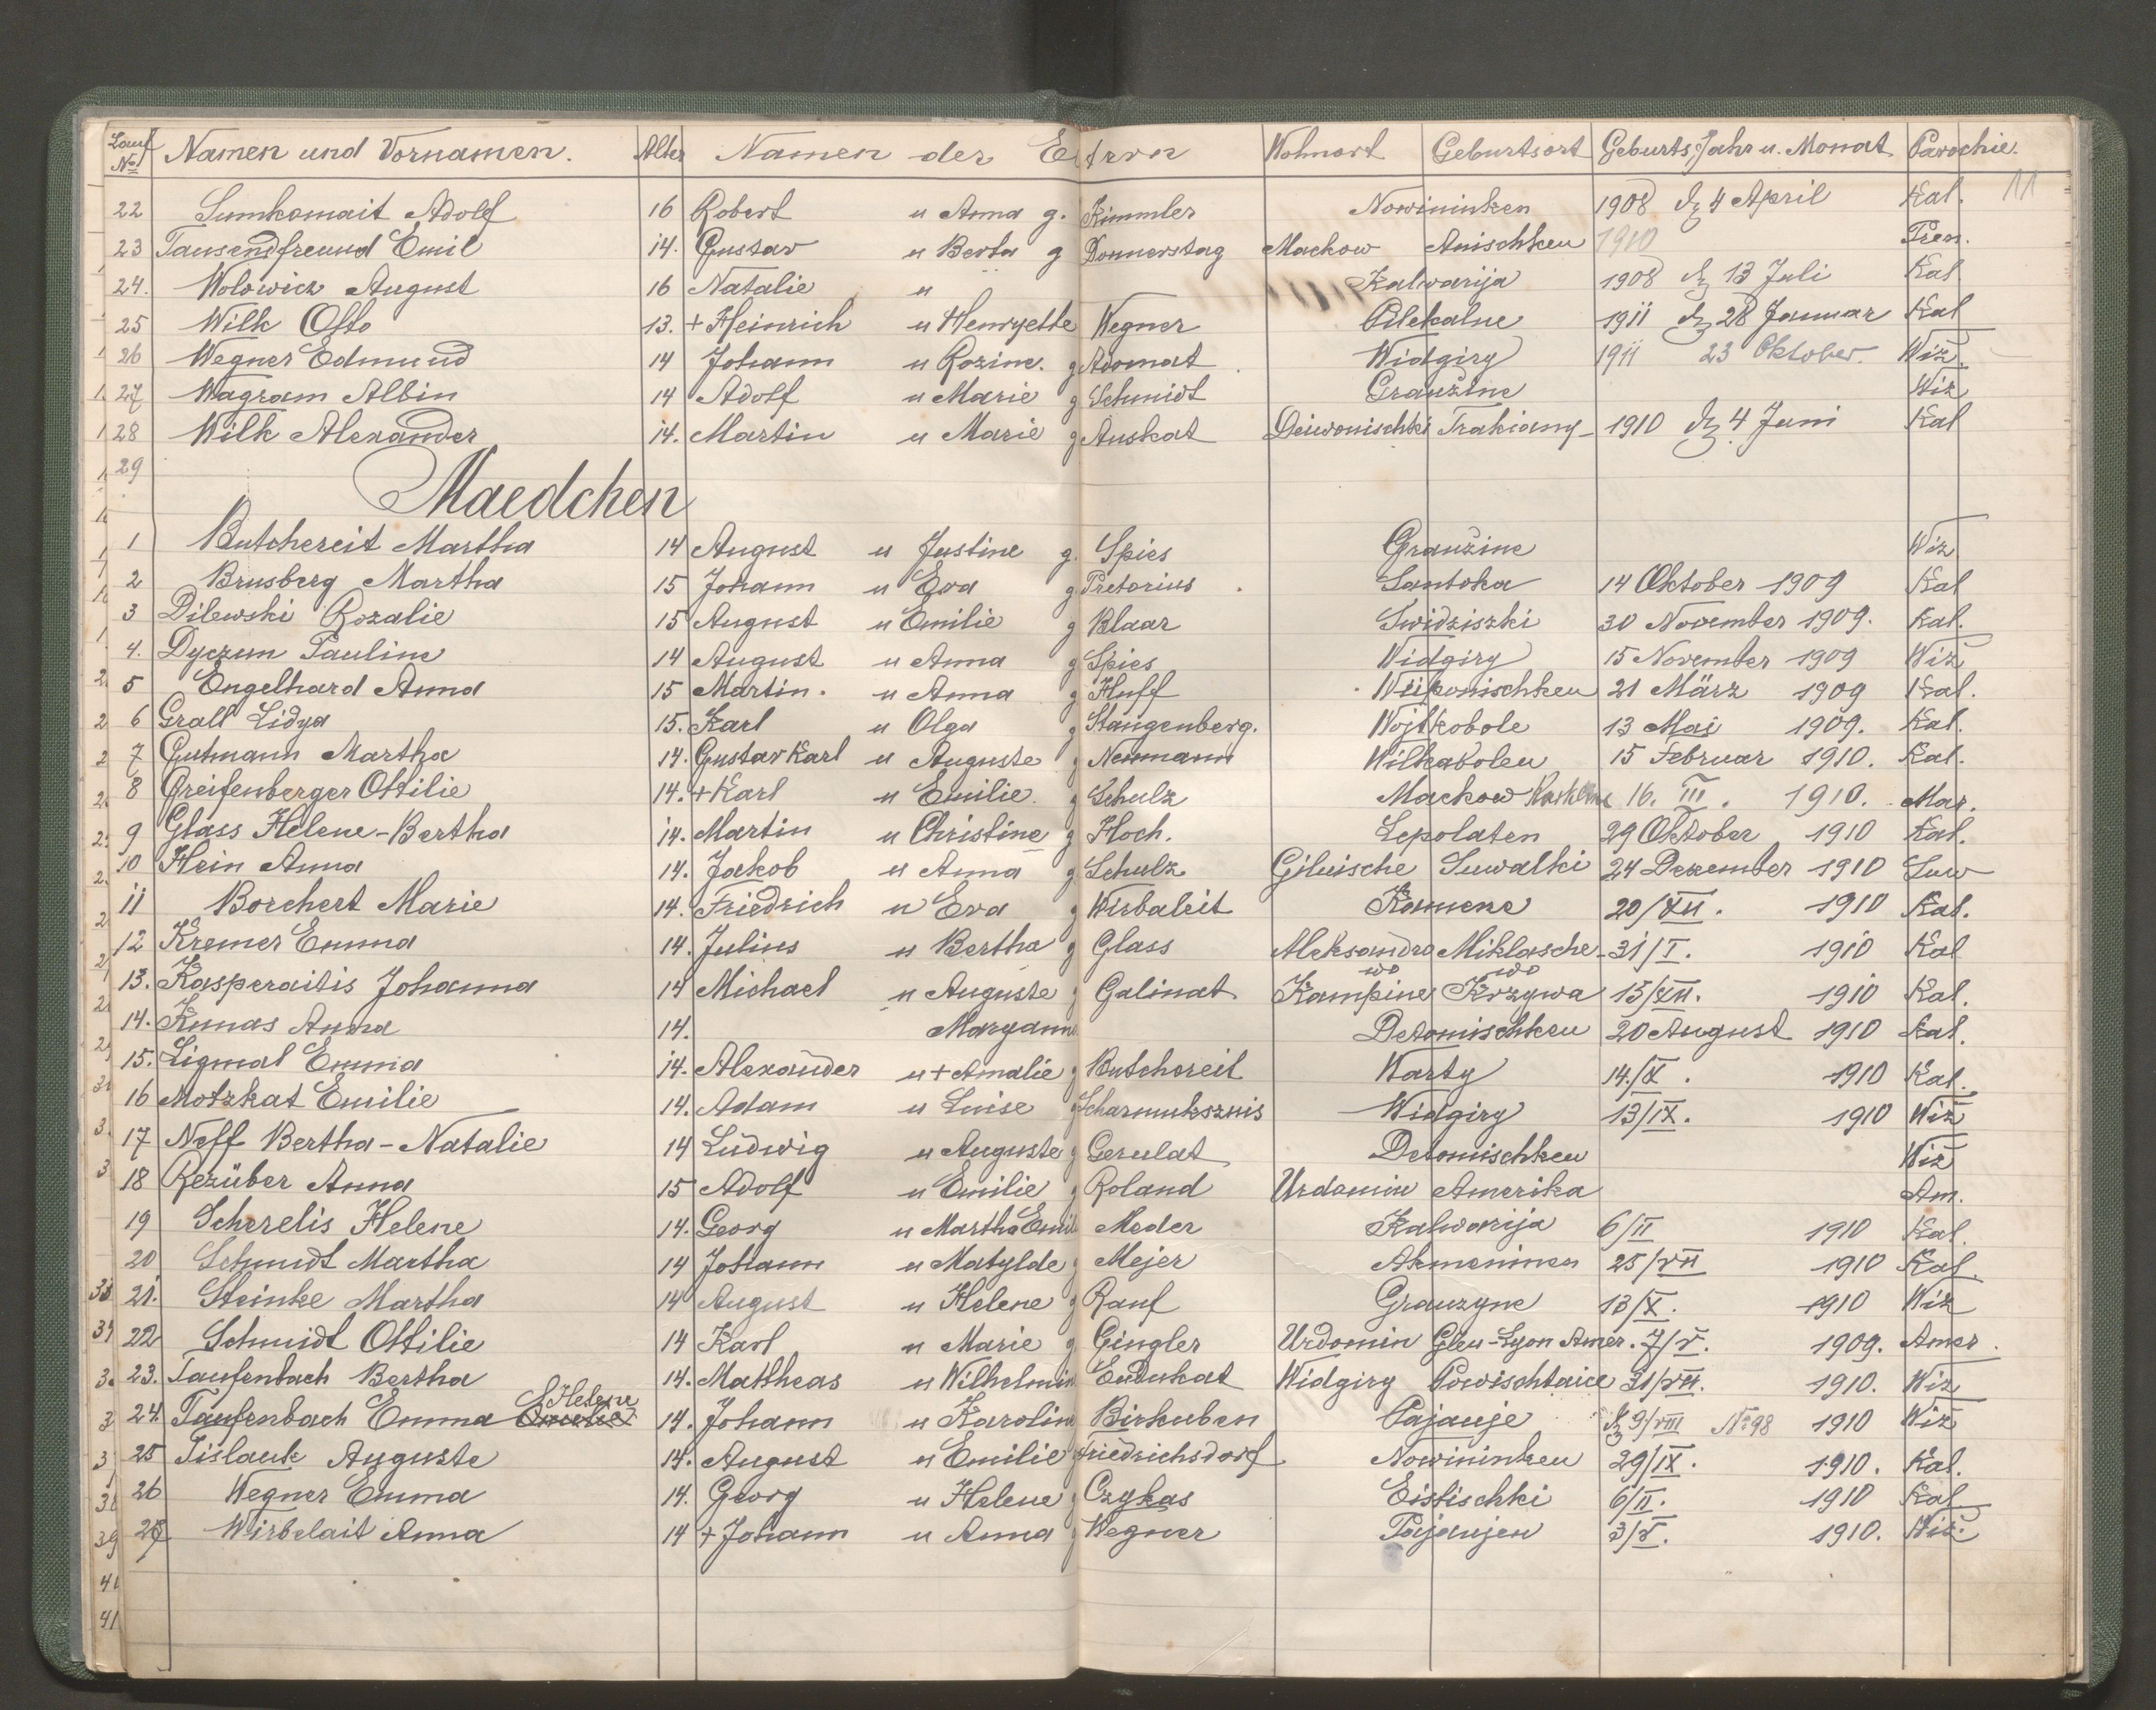 Lauf No Namen und Vornamen. Alter Namen der Eltern Wohnort Geburtsort Geburts Jahr u. Monat Parochie.
11
22 Sumkomait Adolf 16 Robert u Anna g. Kimmler Nowininken 1908 d. 4 April Kal.
23 Tausendfreund Emil 14. Gustav u Berta g Donnerstag Mackow Anischken 1910 Pren.
24. Wolowicz August 16 Natalie u Kalwarija 1908 d. 13 Juli Kal
25 Wilk Otto 13. + Heinrich u Henryette Wegner Pilekalne 1911 d. 28 Januar Kal
26 Wegner Edmund 14 Johann u Rozine. g Adomat Widgiry 1911 23 Oktober. Wiz.
27 Wagram Albin 14 Adolf u Marie g Schmidt Graužine Wiz
28 Wilk Alexander 14. Martin u Marie g Auskat Deiwonischki Trakiany 1910 d. 4 Juni Kal
29
Maedchen
1 Butchereit Martha 14 August u Justine g. Spies Graužine Wiz
2 Brusberg Martha 15 Johann u Eva g Pretorius Santoka 14 Oktober 1909 Kal
3 Dilewski Rozalie 15 August u Emilie g Blaar Swidziszki 30 November 1909. Kal.
4. Dyczun Pauline 14 August u Anna g Spies Widgiry 15 November 1909 Wiz
5 Engelhard Anna 15 Martin. u Anna g Huff Weiponischken 21 März 1909 Kal.
6 Grall Lidya 15. Karl u Olga g Stangenberg. Wojtkobole 13 Mai 1909. Kal.
7 Gutmann Martha 14. Gustav Karl u Auguste g Neumann Wilkabolen 15 Februar 1910. Kal.
8 Greifenberger Ottilie 14. + Karl u Emilie. g Schulz Mackow 16. III. 1910. Mar.
9 Glass Helene-Bertha 14. Martin u Christine g Hoch. Lepolaten 29 Oktober 1910 Kal.
10 Hein Anna 14. Jakob u Anna g Schulz Giluische Suwalki 24 Dezember 1910 Suw
11 Borchert Marie 14. Friedrich u Eva g Wirbaleit Kamene 20/XII. 1910 Kal.
12 Kremer Emma 14. Julius u Bertha g Glass Aleksandrowo Miklaschewo 31/I. 1910 Kal
13. Kasperaitis Johanna 14 Michael u Auguste g Galinat Kampine Krzywa 15/XII. 1910 Kal.
14. Kunas Anna 14. Maryanne Detomischken 20 August 1910 Kal.
15. Ligmal Emma 14. Alexander u + Amalie g Butchoreit Warty 14./X. 1910 Kal.
16 Motzkat Emilie 14. Adam u Luise g Scharmuksznis Widgiry 13/IX. 1910 Wiz
17 Neff Bertha-Natalie 14 Ludwig u Auguste g Gerulat Detomischken Wiz
18 Rezüber Anna 15 Adolf u Emilie g Roland Urdomin Amerika Am.
19 Scherelis Helene 14. Georg u Martha Emil Meder Kalwarija 6/II 1910 Kal.
20 Schmidt Martha 14 Johann u Matylde g Mejer Akmeninen 25/VII 1910 Kal.
21. Steinke Martha 14 August u Helene g Rauf Grauzyne 13/X. 1910 Wiz
22 Schmidt Ottilie 14 Karl u Marie g Gingler Urdomin Glen-Lyon Amer. 7/V. 1909. Amer.
23. Taufenbach Bertha 14. Mattheas u Wilhelmin Endukat Widgiry Powischtaice 31/VII. 1910. Wiz
24. Taufenbach Emma Helene 14. Johann u Karolin Birkuben Pajauje d. 9/VIII No 98 1910 Wiz
25 Tislauk Auguste 14. August u Emilie Friedrichsdorf Nowininken 29/IX. 1910. Kal.
26 Wegner Emma 14. Georg u Helene g Czykas Eistischki 6/II. 1910 Kal
27 Wirbelait Anna 14 + Johann u Anna g Wegner Pajaujen 3/V. 1910. Wiz.